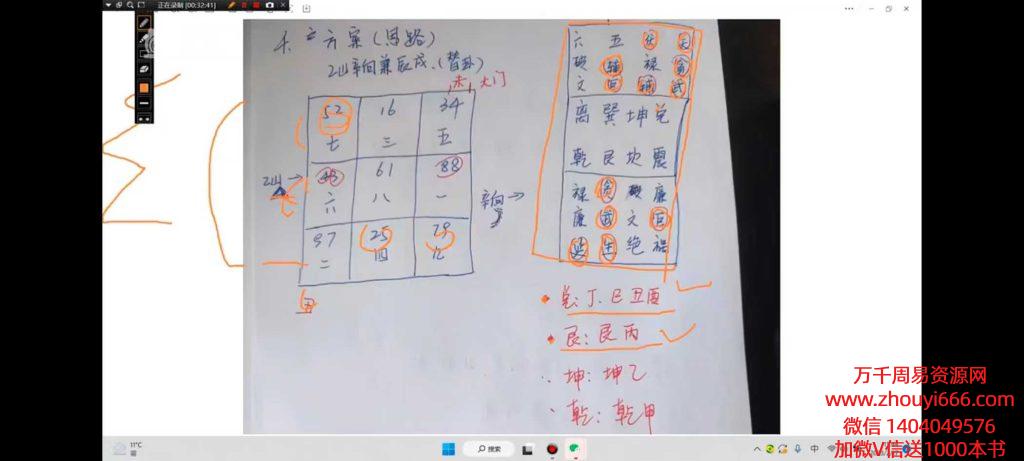 正在录制 [00:32:41]
方案(思路)
2山辛向兼辰戌.(替卦)
未,大门
52 16 34
七 三 五
2山→ 43 61 88
六 八 一
辛向→
97 25 79
二 四 九
丑
六 五 伏 天
破 辅 禄 贪
文 巨 辅 武
离 巽 坤 兑
乾 艮 坎 震
禄 贪 破 廉
廉 武 文 巨
延 生 绝 祸
兑:丁、巳丑酉
艮:艮丙
坤:坤乙
乾:乾甲
万千周易资源网
www.zhouyi666.com
微信 1404049576
加微V信送1000本书
11°C
搜索
中